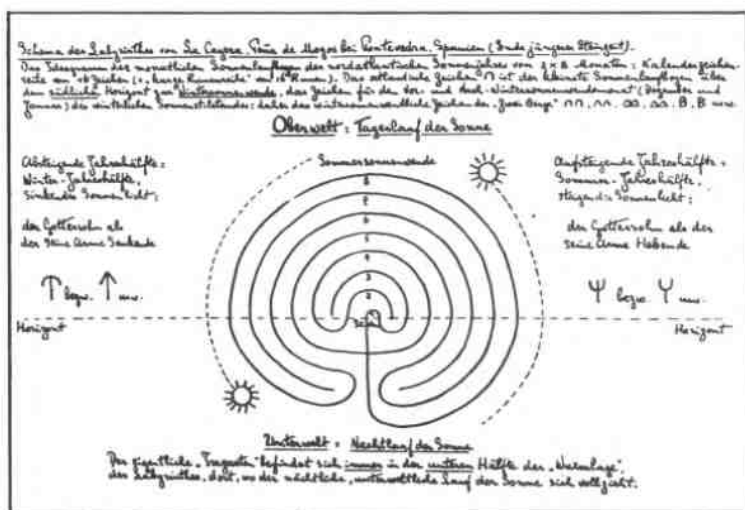 Schema des Labyrinthes von La Cayera, bei Pontevedra, Spanien (Ende jüngerer Steinzeit).
Das Ideogramm der monatlichen Sonnenlaufbogen des nordatlantischen Sonnenjahres von 2 x 8 Monaten: Kalenderzeichen-
reihe von 16 Zeichen (: „kurze Runenreihe" von 16 Runen). Das Zeichen ∩ ist der kleinste Sonnenlaufbogen über
dem südlichen Horizont zur Wintersonnenwende, das Zeichen für den Vor- und Nach-Wintersonnenwendemonat (Dezember und
Januar) des winterlichen Sonnenstillstandes: daher das wintersonnenwendliche Zeichen der „zwei Berge" usw.
Oberwelt = Tageslauf der Sonne
Absteigende Jahreshälfte =
Winter-Jahreshälfte,
Sinkendes Sonnenlicht:
der Gottessohn als
der seine Arme Senkende
bezw. usw.
Sommersonnenwende
Aufsteigende Jahreshälfte =
Sommer-Jahreshälfte,
steigendes Sonnenlicht:
der Gottessohn als der
seine Arme Hebende
bezw. usw.
8
7
6
5
4
3
2
Horizont
Horizont
Unterwelt = Nachtlauf der Sonne
Der eigentliche befindet sich immer in der unteren Hälfte der „Wurmlage",
des Labyrinthes, dort, wo der nächtliche, unterweltliche Lauf der Sonne sich vollzieht.